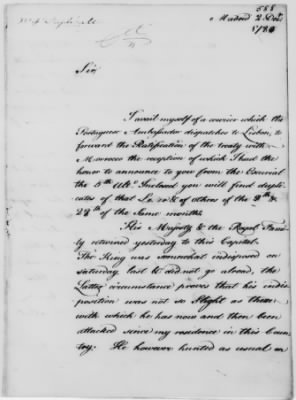 588
Madrid 2 Decr
1784
Sir,
I avail myself of a courier which the
Portuguese Ambassador dispatches to Lisbon, to
forward the Ratification of the treaty with
Morocco the reception of which I had the
honor to announce to you from the Escurial
the 5th Ulto. Inclosed you will find dupli
cates of that Le. & of others of the 9th &
29th of the same month.
His Majesty & the Royal Fami
ly returned yesterday to this Capital.
The King was somewhat indisposed on
saturday last & did not go abroad, the
Latter circumstance proves that his indis
position was not so slight as those
with which he has now and then been
attacked since my residence in this Coun
try. He however hunted as usual on